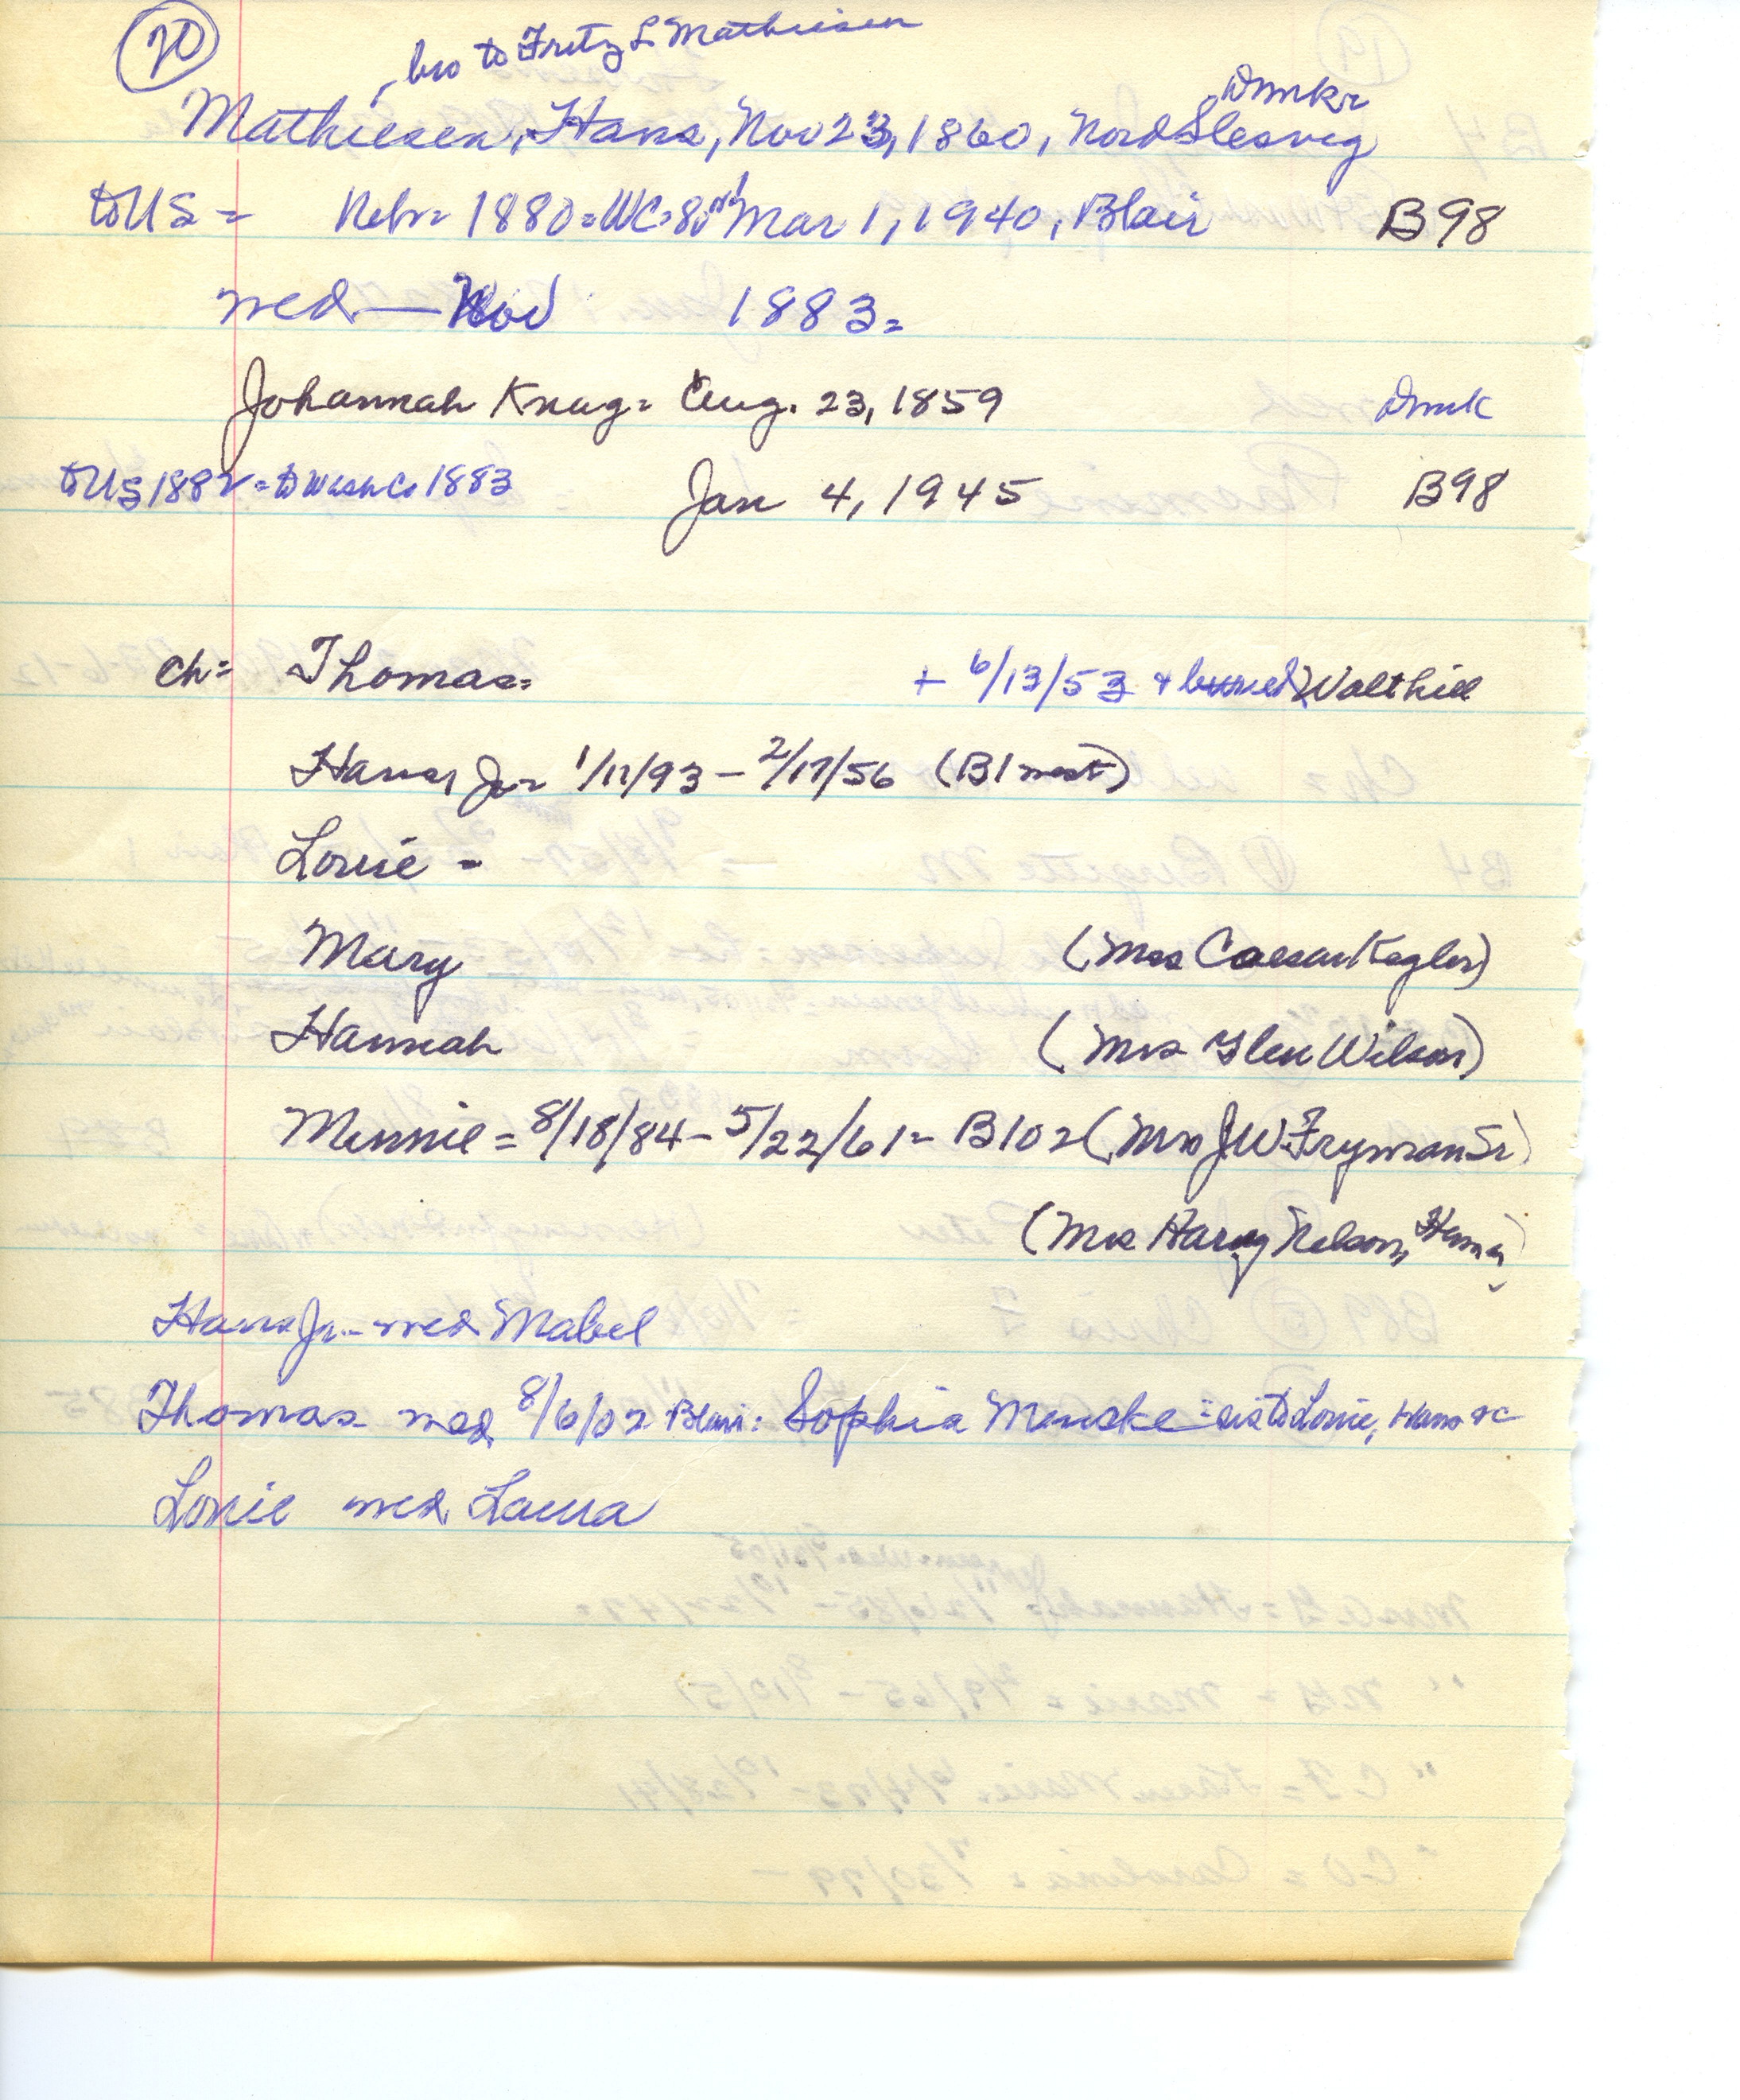 20
bro to Fritz L Mathiesen
Mathiesen, Hans, Nov 23, 1860, Nord Slesvig, Dnmkr
to US = Nebr = 1880 = WC = 80 Mar 1, 1940, Blair B98
wed — Nov 1883 =
Johannah Krug = Aug. 23, 1859 Dnmk
to US 1882 = to Wash Co 1883 Jan 4, 1945 B98
ch = Thomas = + 6/13/53 + buried Walthill
Hans, Jr = 1/11/93 – 2/17/56 (Bl )
Louie -
Mary (Mrs Caesar Kegler)
Hannah (Mrs Glen Wilson)
Minnie = 8/18/84 – 5/22/61 = B102 (Mrs J.W. Fryman Sr)
(Mrs Harry Nelson,
Hans Jr. - wed Mabel
Thomas wed 8/6/02 Blair: Sophia Mencke = sis to Louie, Hans &c
Louie wed Laura